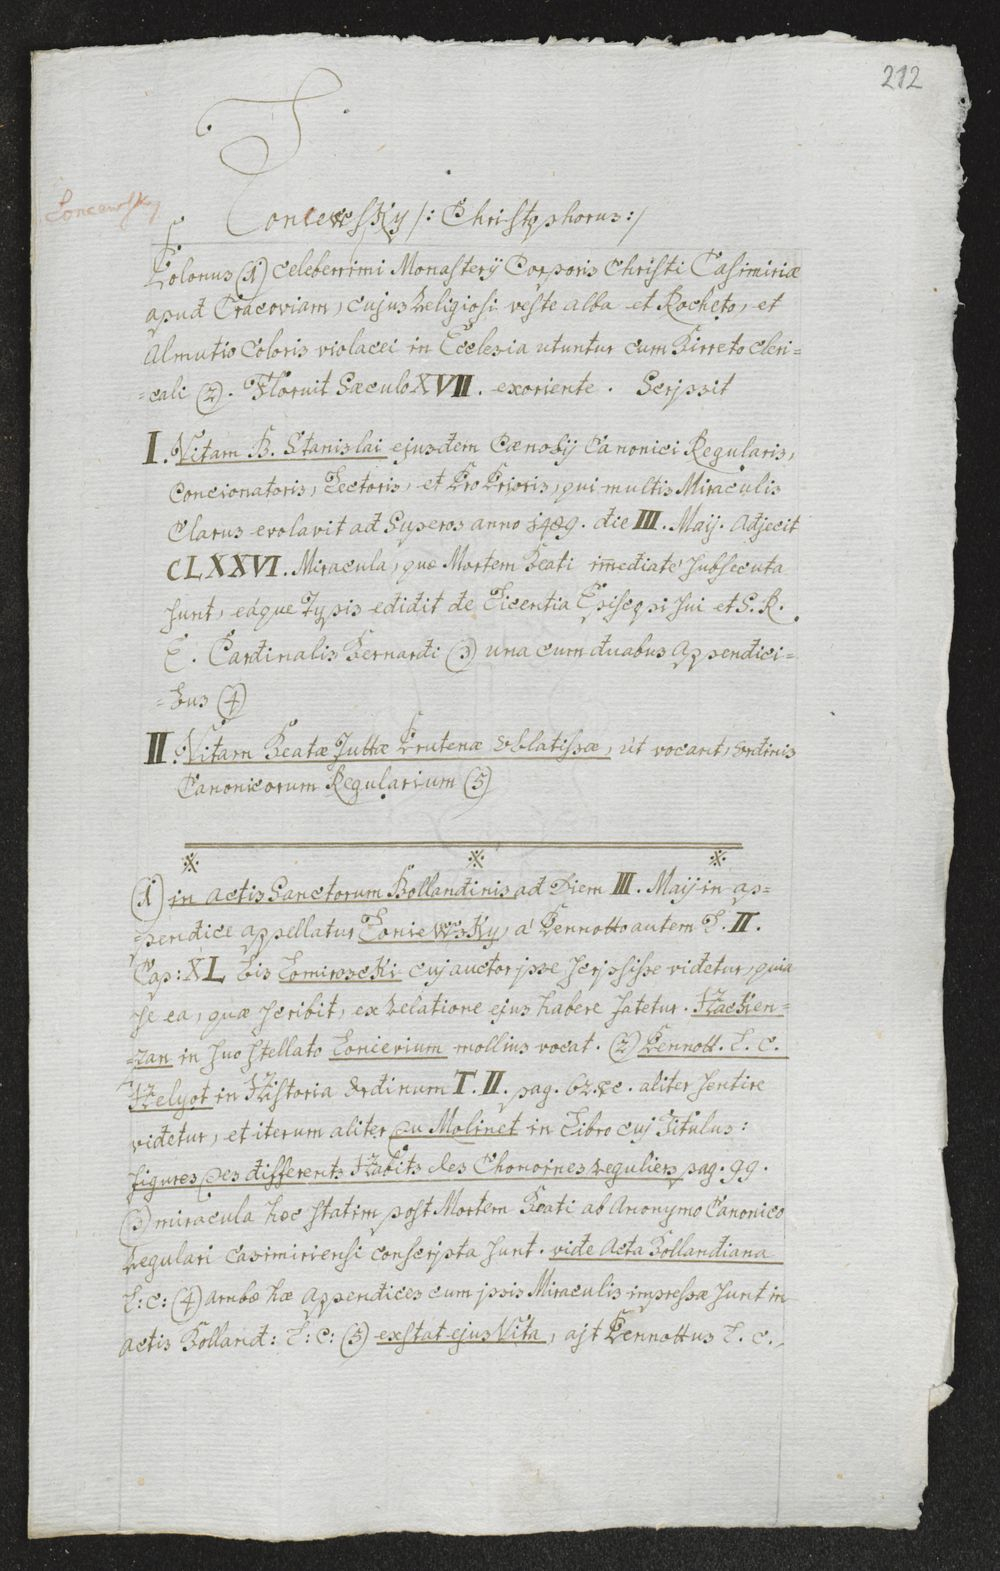 212
Loncewsky
Loncewsky /: Christophorus :/
Polonus (1) celeberrimi Monasterÿ Corporis Christi Casimiriæ
apud Cracoviam, cujus Religiosi veste alba et Rocheto, et
Almutio Coloris violacei in Ecclesia utuntur cum Birreto cleri=
=cali (2). Floruit Sæculo XVII. exoriente. Scripsit
I. Vitam B. Stanislai ejusdem Cænobÿ Canonici Regularis,
Concionatoris, Lectoris, et Pro Prioris, qui multis Miraculis
Clarus evolavit ad Superos anno 1489. die III. Maÿ. Adjecit
CLXXVI. Miracula, quæ Mortem Beati im̄ediatè subsecuta
sunt, eáque Typis edidit de Licentia Episcopi sui et S. R.
E. Cardinalis Bernardi (3) una cum duabus Appendici=
=bus (4)
II. Vitam Beatæ Juttæ Prutenæ Oblatissæ, ùt vocant, Ordinis
Canonicorum Regularium (5)
(1) in Actis Sanctorum Bollandinis ad Diem III. Maÿ in ap=
=pendice appellatur Loniewsky, á Pennotto autem L. II.
Cap: XL bis Lomirowcki cuj auctor ipse scripsisse videtur, quia
se ea, quæ scribit, ex Relatione ejus habere fatetur. Hacken=
=zan in suo stellato Loncevium mollius vocat. (2) Pennott. L. C.
Helyot in Historia Ordinum T. II. pag. 62. &c. aliter sentire
videtur, et iterum aliter Du Molinet in Libro cuj Titulus:
figures des differents Habits des Chonoines Reguliers pag. 99.
(3) miracula hæc statim post Mortem Beati ab Anonymo Canonico
Regulari Casimiriensi conscripta sunt. vide Acta Bollandiana
L: C: (4) ambæ hæ Appendices cum ipsis Miraculis impressæ sunt in
Actis Bolland: L: C: (5) exstat ejus Vita, ajt Pennottus L. C.